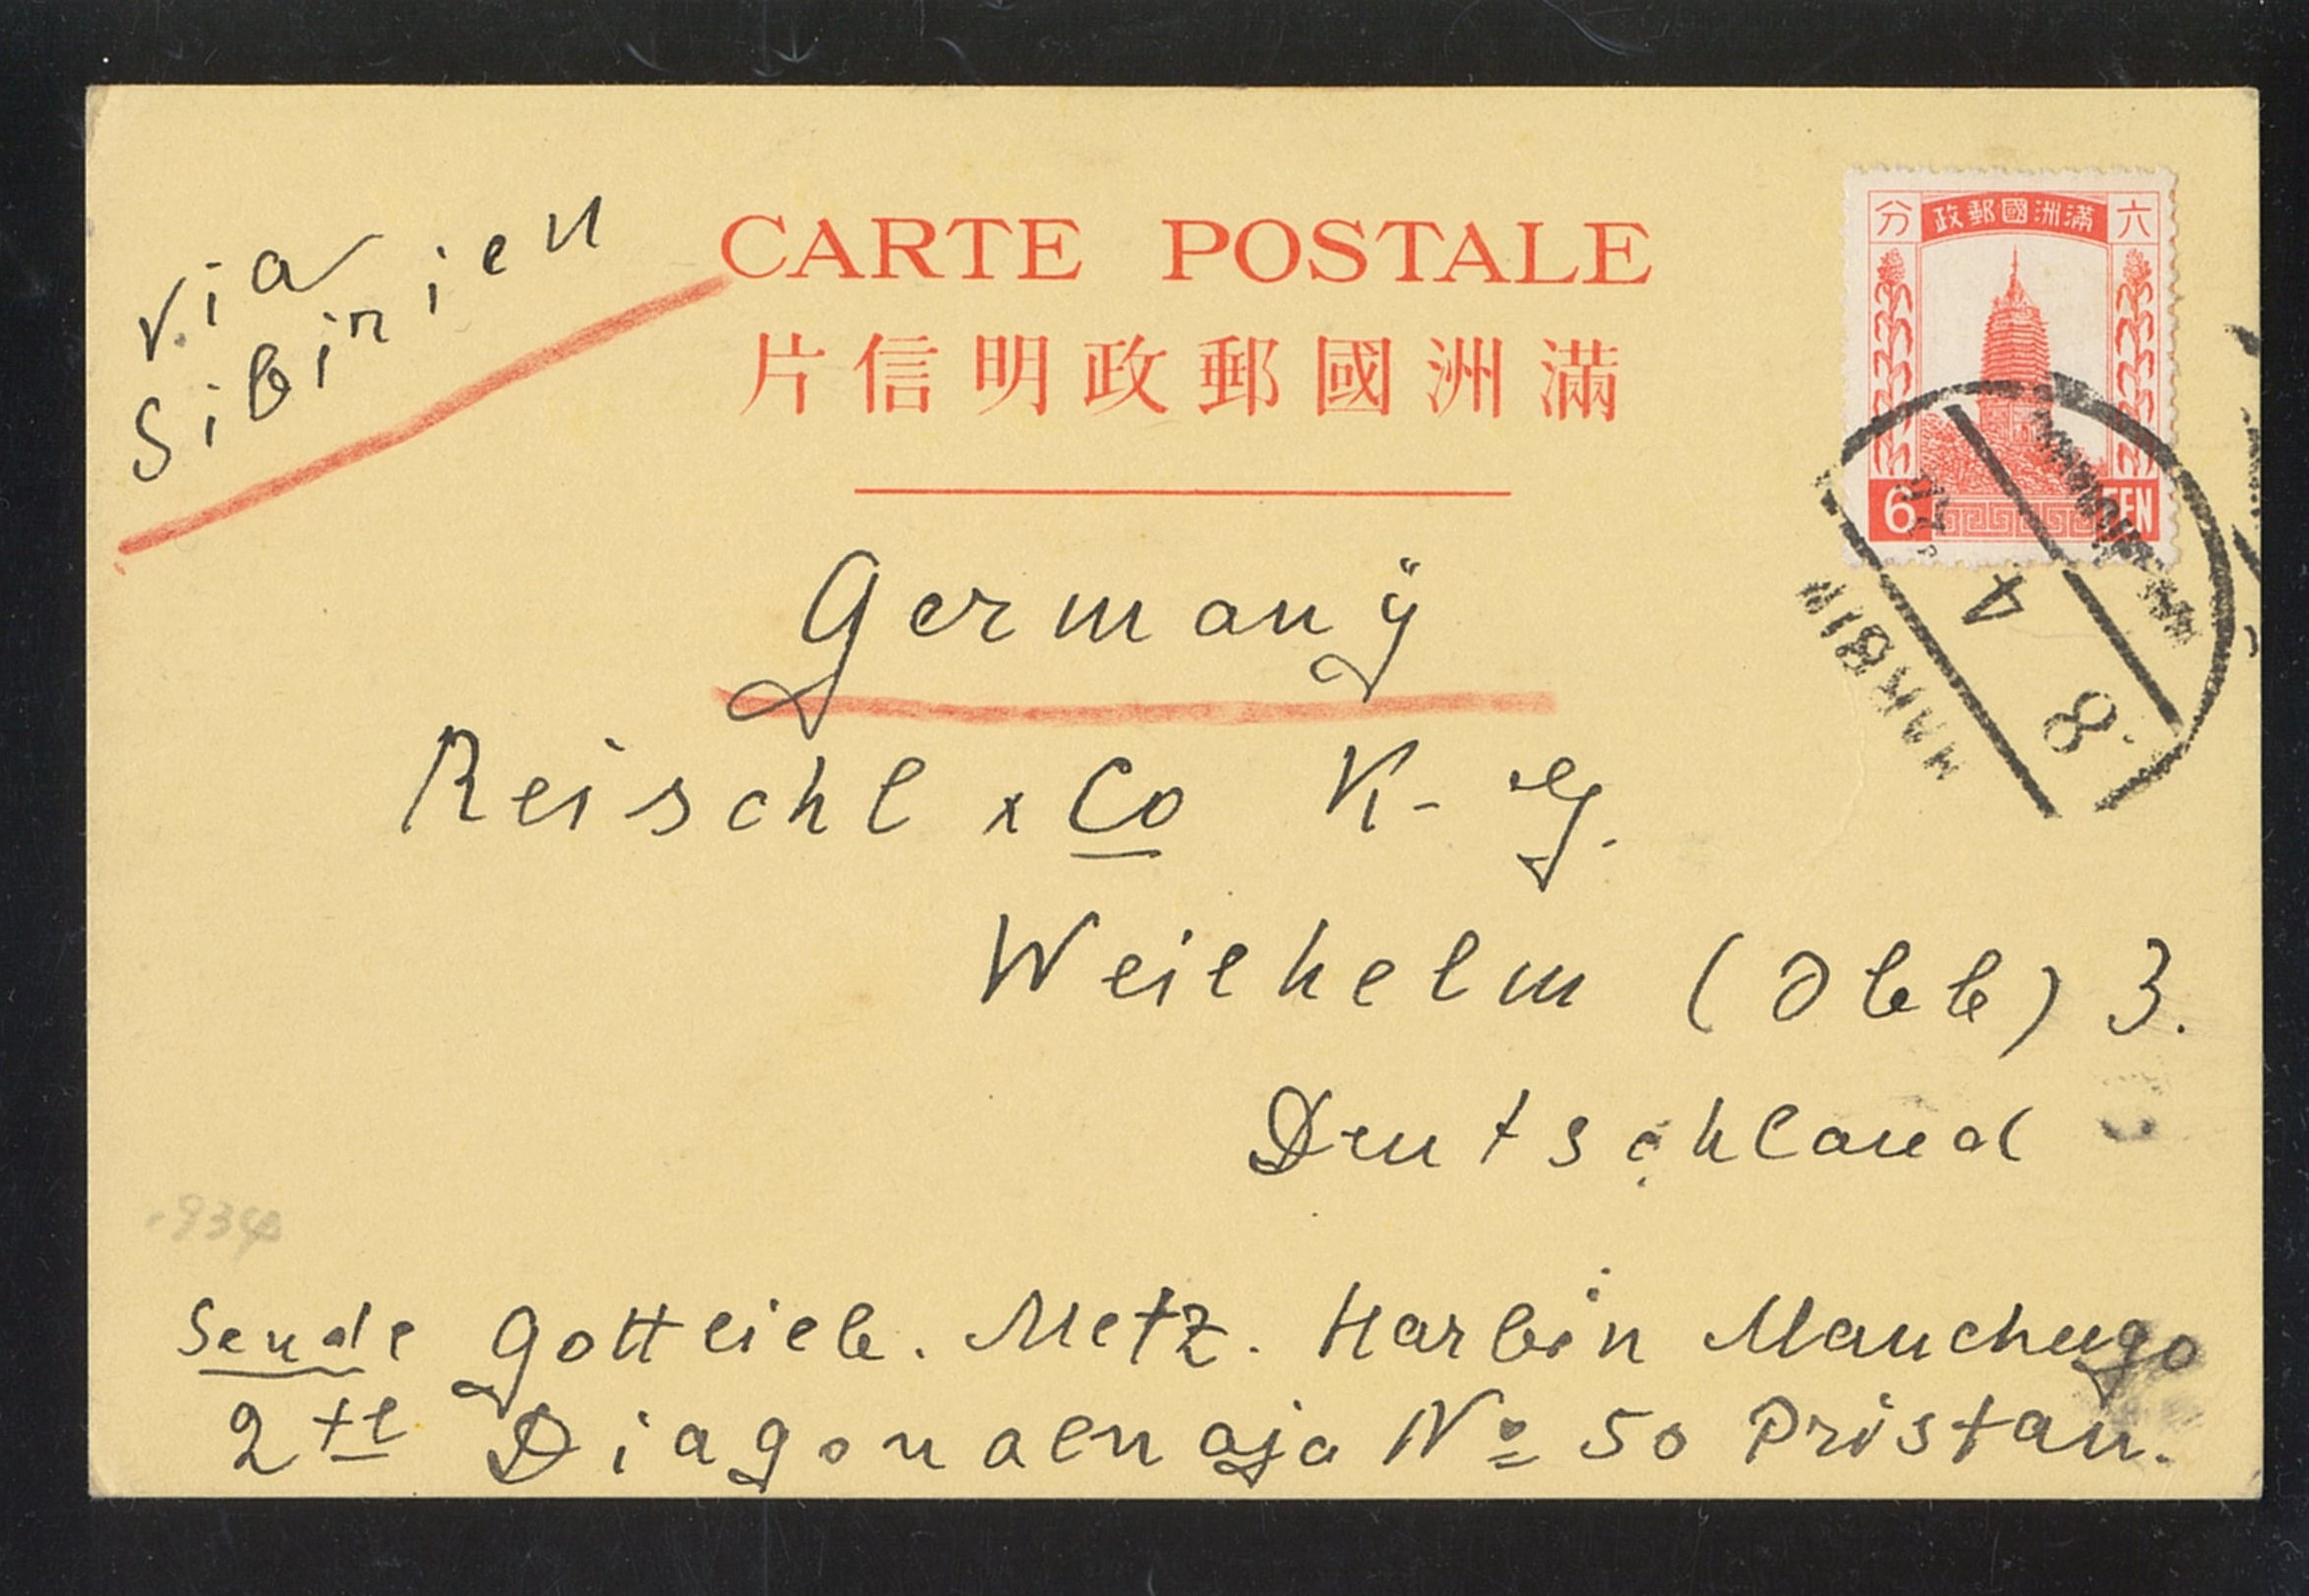 via
Sibirien
CARTE POSTALE
片信明政郵國洲滿
分 政郵國洲滿 六
6 FEN
HARBIN
4
8
Germanÿ
Reischl x Co K-G.
Weilheim (Obb) 3.
Deutschland
934
Sende Gottlieb. Metz. Harbin Manchugo
2te Diagonalnaja No 50 Pristan.